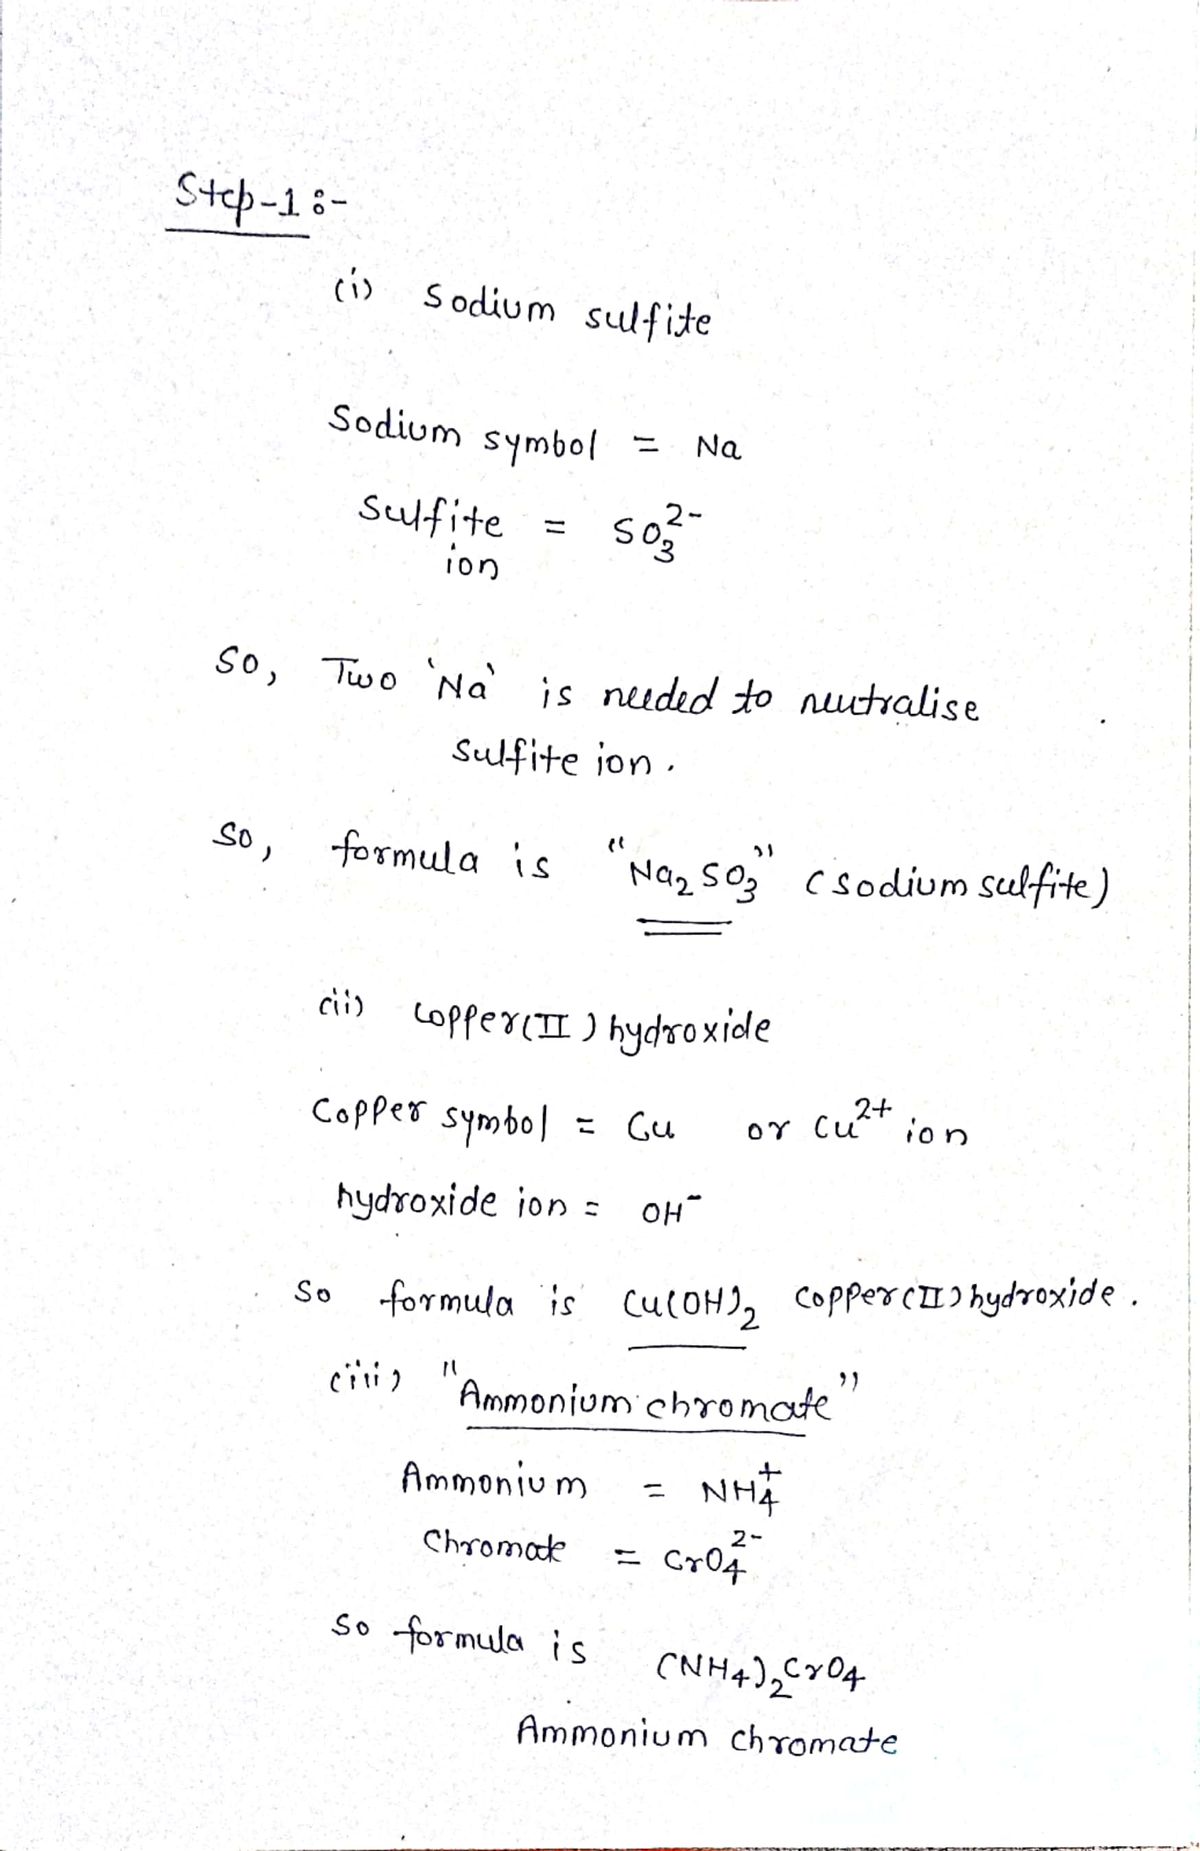 Step-1:-
(i) Sodium sulfite
Sodium symbol = Na
Sulfite = SO₃²⁻
ion
So, Two 'Na' is needed to neutralise
sulfite ion.
So, formula is "Na₂SO₃" (sodium sulfite)
(ii) Copper(II) hydroxide
Copper symbol = Cu or Cu²⁺ ion
hydroxide ion = OH⁻
So formula is Cu(OH)₂ Copper(II) hydroxide.
(iii) "Ammonium chromate"
Ammonium = NH₄⁺
Chromate = CrO₄²⁻
So formula is (NH₄)₂CrO₄
Ammonium chromate